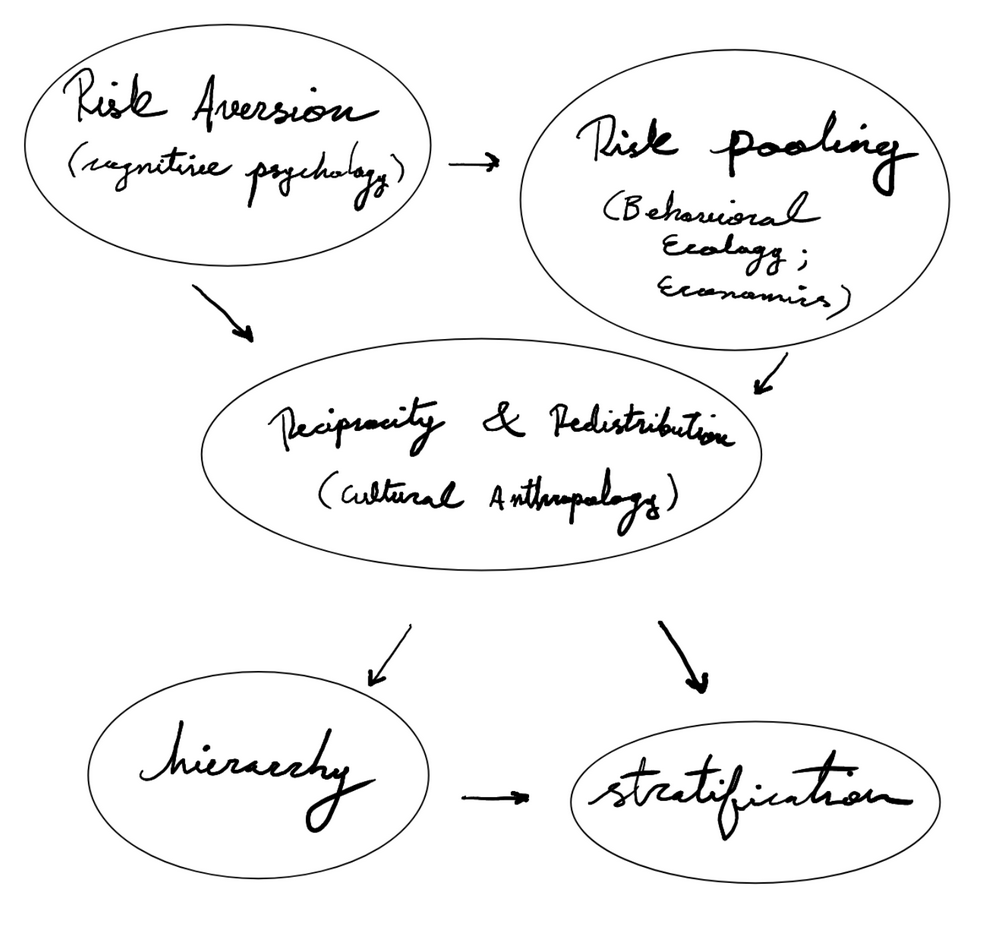 Risk Aversion
(cognitive psychology)
Risk pooling
(Behavioral
Ecology;
Economics)
Reciprocity & Redistribution
(Cultural Anthropology)
hierarchy
stratification